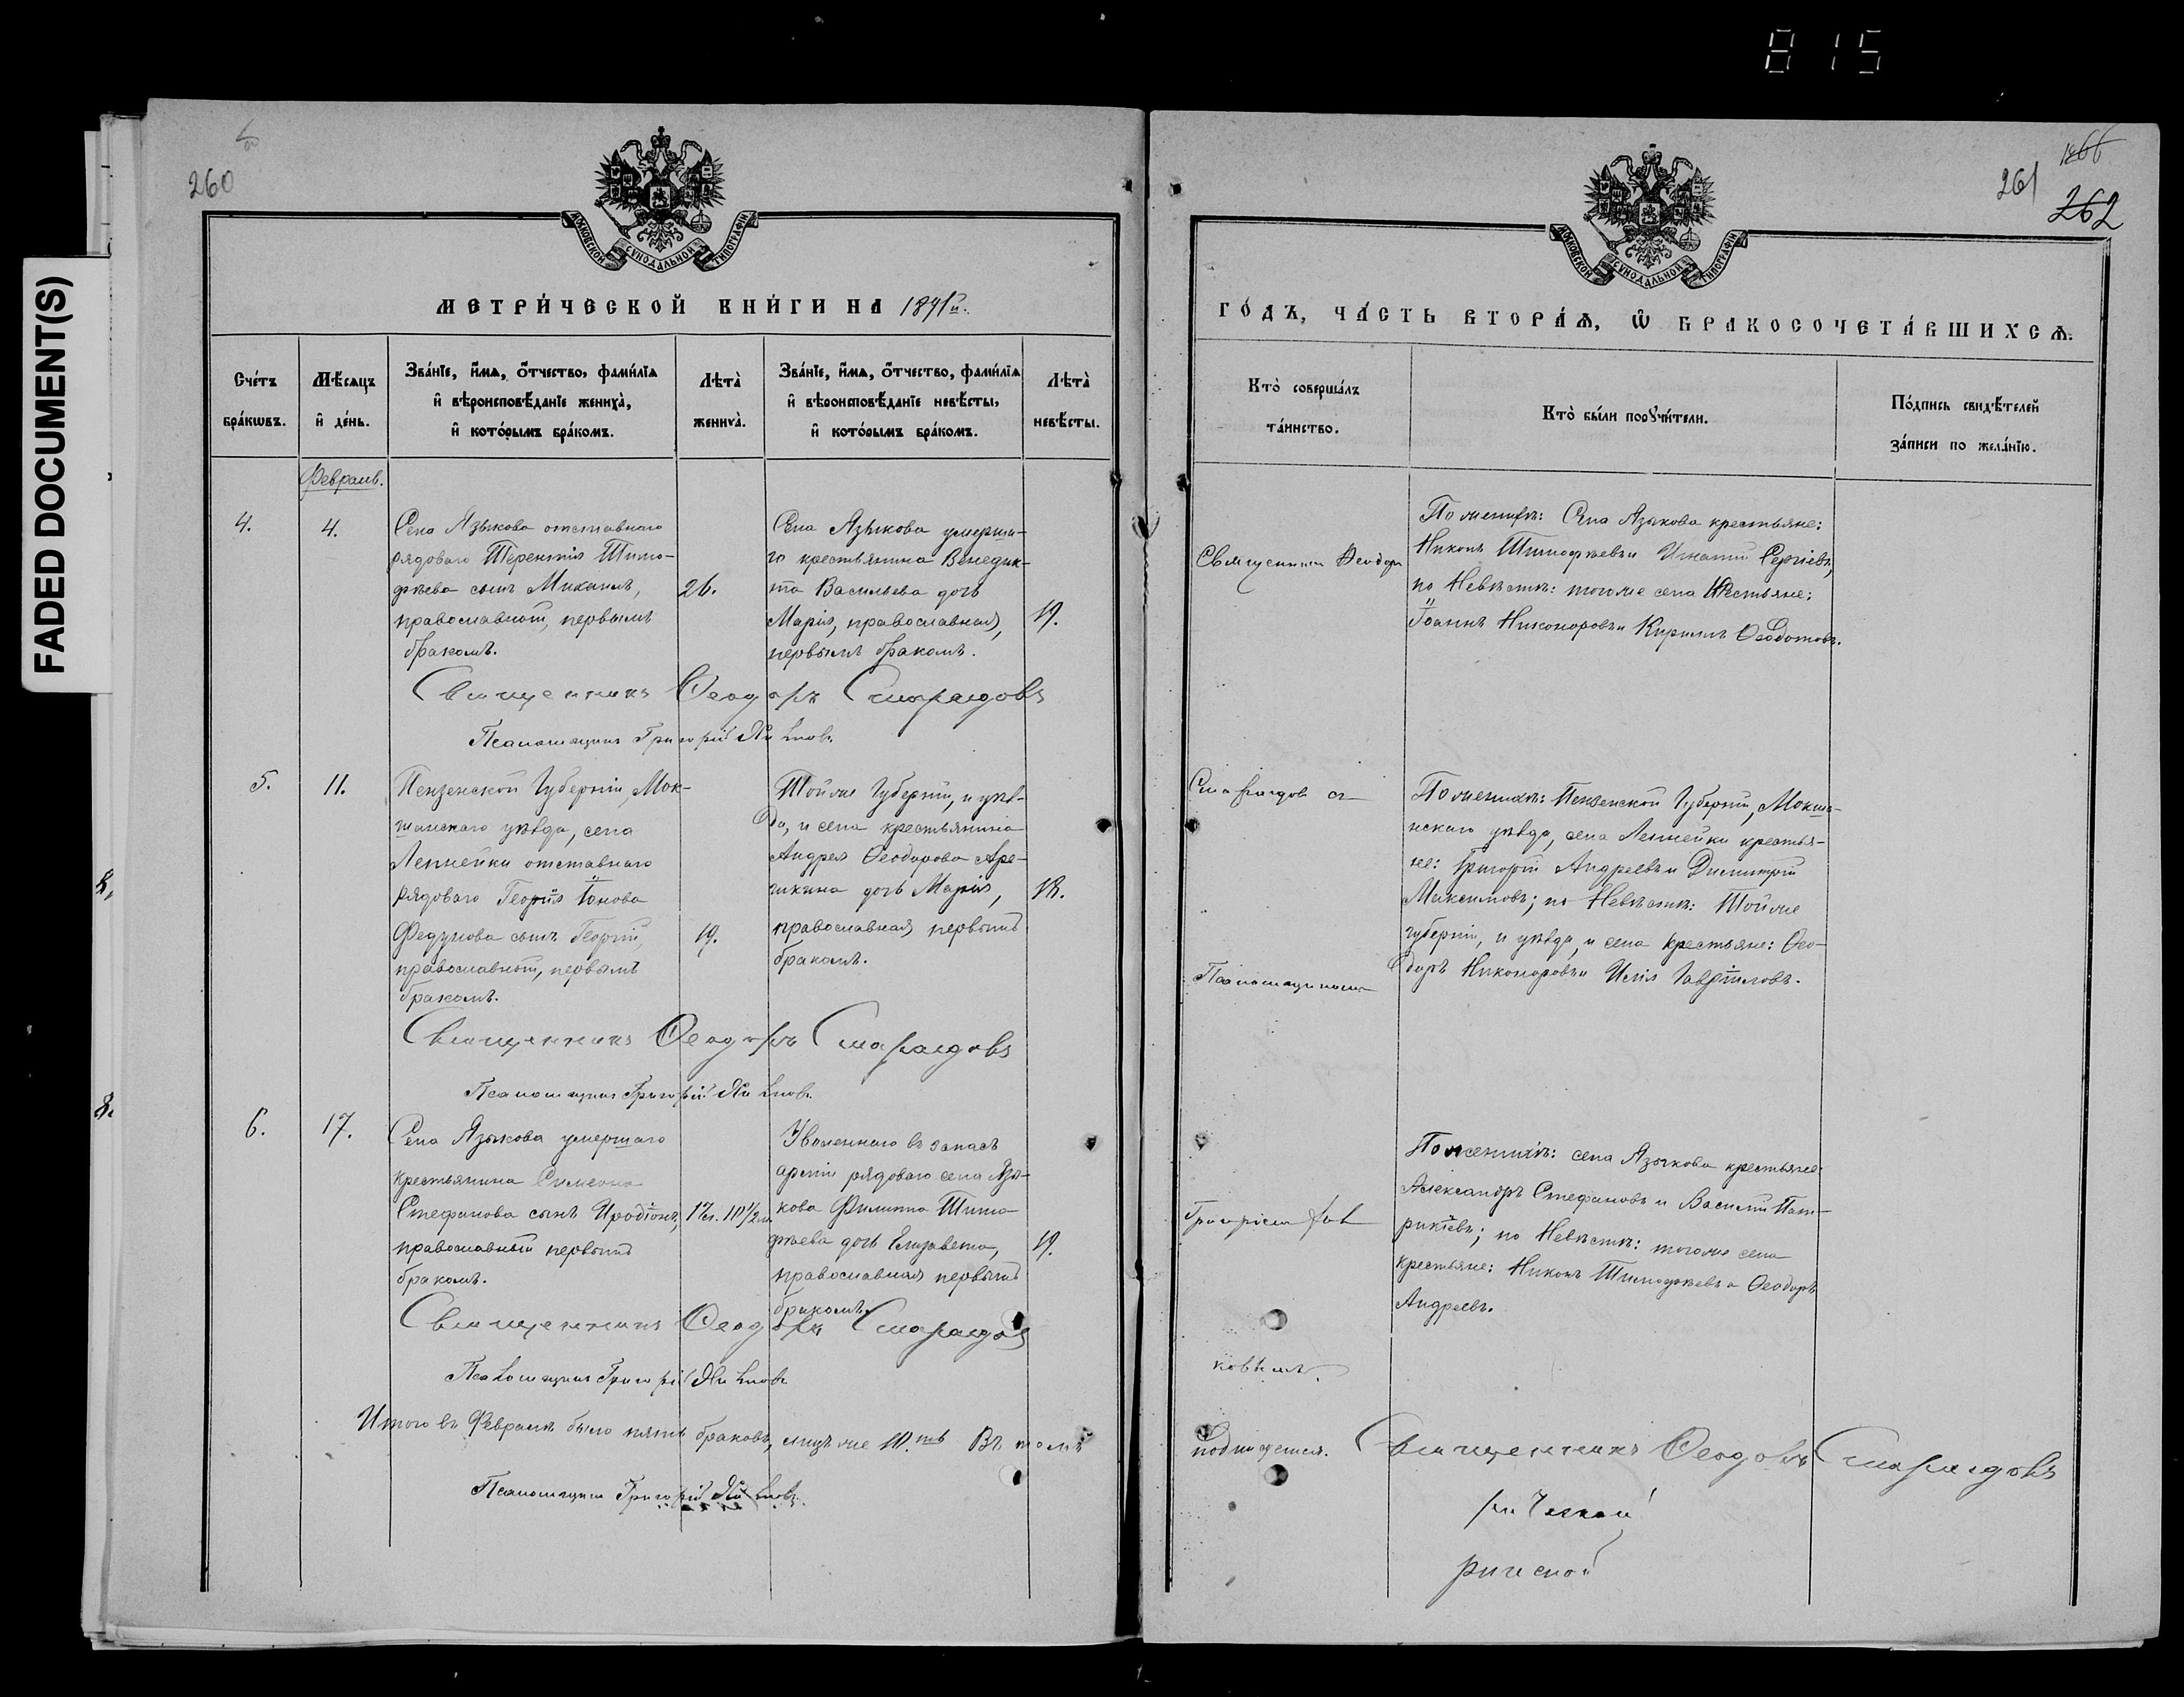 815
FADED DOCUMENT(S)
260
МОСКОВСКОЙ СѴНОДАЛЬНОЙ ТИПОГРАФІИ
МЕТРИ́ЧЕСКОЙ КНИ́ГИ НА 1891й.
Сче́тъ бра́кωвъ.
Мѣ́сяцъ и҆ де́нь.
Зва́нїе, и҆́мѧ, ѻ҆́тчество, фами́лїѧ и҆ вѣроисповѣ́данїе жениха̀, и҆ кото́рымъ бра́комъ.
Лѣта̀ жениха̀.
Зва́нїе, и҆́мѧ, ѻ҆́тчество, фами́лїѧ и҆ вѣроисповѣ́данїе невѣ́сты, и҆ кото́рымъ бра́комъ.
Лѣта̀ невѣ́сты.
Февраль.
4.
4.
Села Языкова отставнаго
рядоваго Терентія Тимо-
фѣева сынъ Михаилъ,
православный, первымъ
бракомъ.
26.
Села Языкова умерша-
го крестьянина Венедик-
та Васильева дочь
Марія, православная,
первымъ бракомъ.
19.
Священникъ Ѳеодоръ Смарагдовъ
Псаломщикъ Григорій
5.
11.
Пензенской Губерніи, Мок-
шанскаго уѣзда, села
отставнаго
рядоваго Георгія Іонова
сынъ Георгій,
православный, первымъ
бракомъ.
19.
Той же Губерніи, и уѣз-
да, и села крестьянина
Андрея Ѳеодорова Аре-
дочь Марія,
православная первымъ
бракомъ.
18.
Священникъ Ѳеодоръ Смарагдовъ
Псаломщикъ Григорій
6.
17.
Села Языкова умершаго
крестьянина Симеона
Стефанова сынъ Иродіонъ,
православный первымъ
бракомъ.
17л. 10½ м.
Уволеннаго въ запасъ
арміи рядоваго села Язы-
кова Филиппа Тимо-
фѣева дочь Елизавета,
православная первымъ
бракомъ.
19.
Священникъ Ѳеодоръ Смарагдовъ
Псаломщикъ Григорій
Итого въ Февралѣ было пять браковъ, лицъ же 10.ть Въ томъ
Псаломщикъ Григорій
1866
261
262
МОСКОВСКОЙ СѴНОДАЛЬНОЙ ТИПОГРАФІИ
ГО́ДЪ, ЧА́СТЬ ВТОРА́Ѧ, Ѡ҆ БРАКОСОЧЕТА́ВШИХСѦ.
Кто̀ соверша́лъ та́инство.
Кто̀ бы́ли порꙋчи́тели.
По́дпись свидѣ́телей за́писи по жела́нїю.
Священникъ Ѳеодоръ
По женихѣ: Села Языкова крестьяне:
Никонъ Тимофѣевъ и Игнатій Сергіевъ,
по Невѣстѣ: того же села крестьяне:
Іоаннъ Никоноровъ и Кириллъ Ѳеодотовъ.
Смарагдов съ
По женихѣ: Пензенской Губерніи, Мокша-
нскаго уѣзда, села крестья-
не: Григорій Андреевъ и Димитрій
Максимовъ; по Невѣстѣ: Той же
губерніи, и уѣзда, и села крестьяне: Ѳео-
доръ Никоноровъ и Илія Гавріиловъ.
Псаломщикомъ
По женихѣ: села Языкова крестьяне:
Александръ Стефановъ и Василій Пат-
рикіевъ; по Невѣстѣ: того же села
крестьяне: Никонъ Тимофѣевъ и Ѳеодоръ
Андреевъ.
Григоріемъ
подпишемся. Священникъ Ѳеодоръ Смарагдовъ